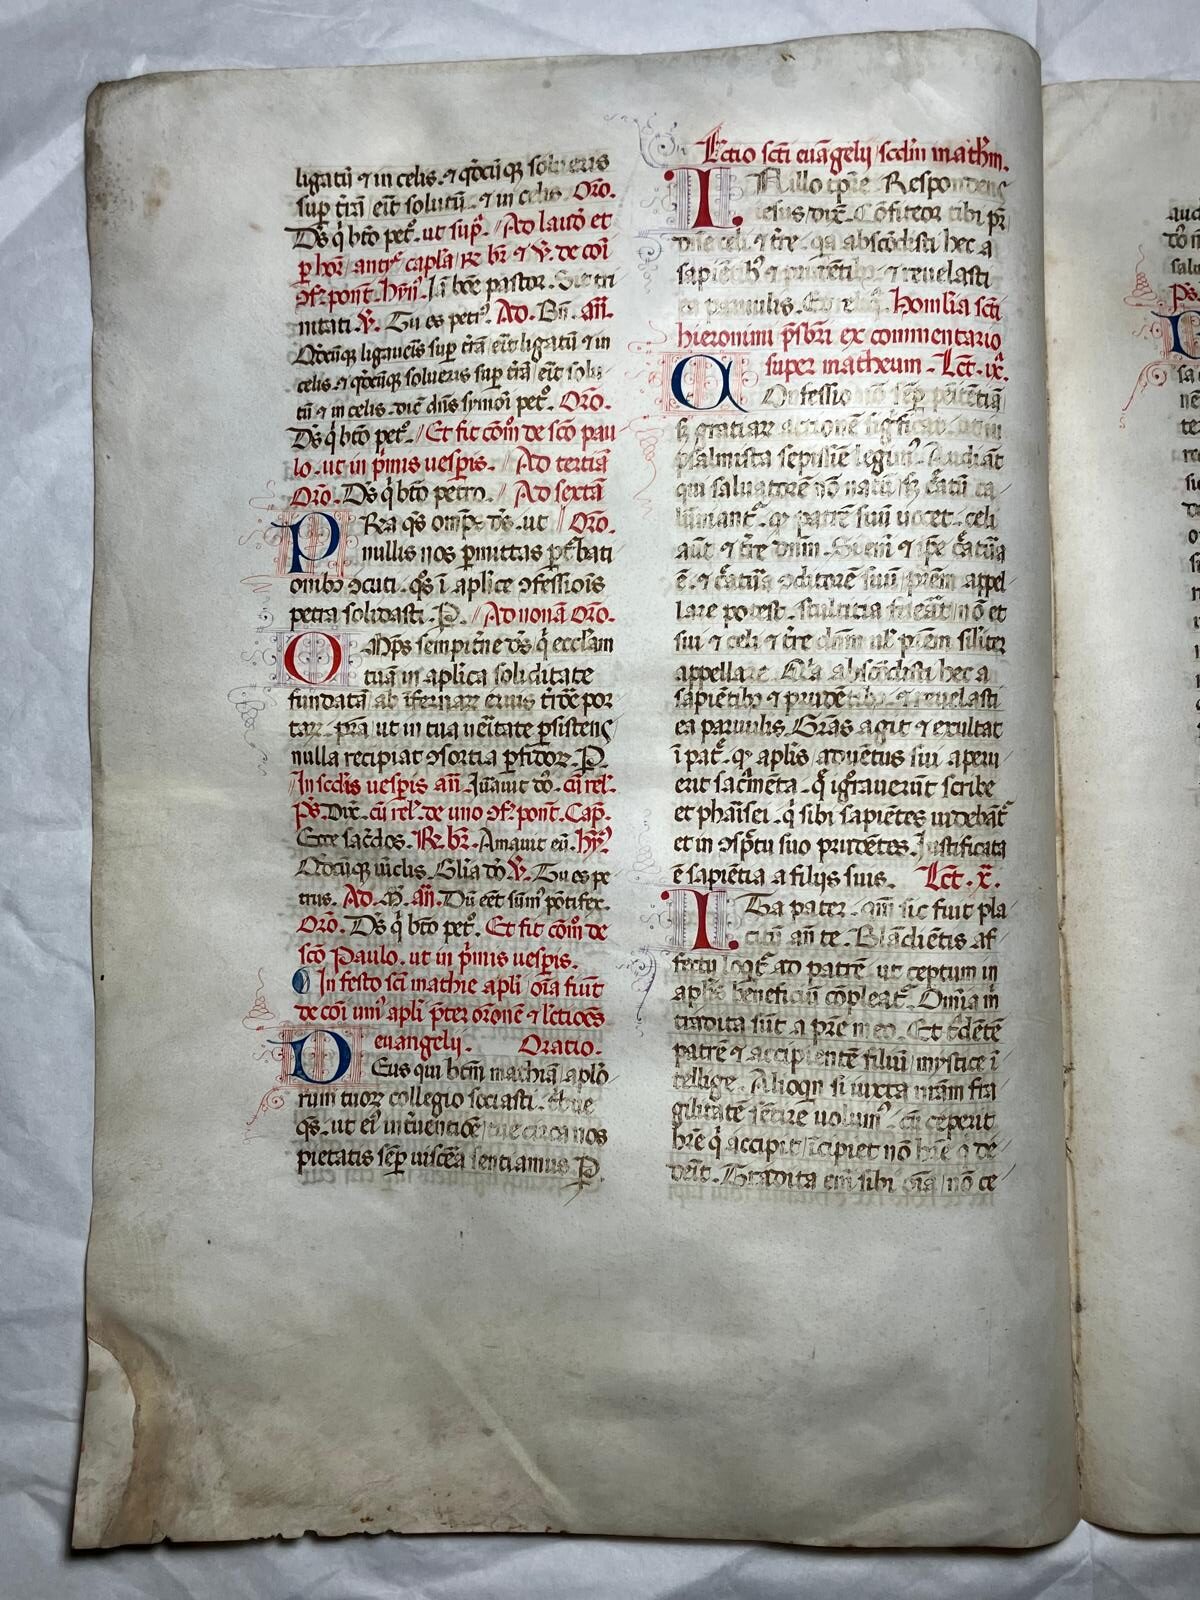 ligatū ⁊ in celis. ⁊ qd̄cūqȝ solueris
sup t̄rā erit solutū ⁊ in celis. Orō.
Ds̄ q̇ bt̄o pet°. ut sup̄. Ad laud̄ et
p hor̄ antȳᵉ capl̄a ℞ br̄ ⁊ ℣. de cōi
ꝯf. pont. hȳn̄. Iā bōe pastor. Sit tri
nitati. ℣. Tu es petr⁹. Ad. Bn̄. an̄.
Qd̄cūqȝ ligaueris sup t̄rā erit ligatū ⁊ in
celis. ⁊ qd̄cūqȝ solueris sup t̄rā erit solu
tū ⁊ in celis. dic̄ dn̄s symōi pet°. Orō.
Ds̄ q̇ bt̄o pet°. Et fit cōm̄ de sc̄o pau
lo. ut in p̄mis uesp̄is. Ad tertiā
Orō. Ds̄ q̇ bt̄o petro. Ad sextā
PRea qs̄ omp̄s ds̄. ut Orō.
nullis nos ꝑmittas ꝑt̄bati
onibȝ ꝯcuti. qs̄ ī aplīce ꝯfessiōis
petra solidasti. P̄. Ad nonā Orō.
OMp̄s sempit̄ne ds̄ q̇ eccl̄am
tuā in aplīca soliditate
fundatā ab īfernar̄ eruis t̄rōe por
tar̄. pr̄a ut in tua ueritate ꝑsistens
nulla recipiat ꝯsortia ꝑfidor̄. P̄.
In scd̄is uesp̄is an̄. Iurauit dō. cū rel.
Ps̄. Dix̄. cū rel. de uno ꝯf. pont. Cap̄.
Ecce sac̄dos. ℞ br̄. Amauit eū. hȳ.
Qd̄cūqȝ uīclis. Gl̄ia dō ℣. Tu es pe
trus. Ad. M̄. an̄. Dū eēt sūm⁹ pōtifex.
Orō. Ds̄ q̇ bt̄o pet°. Et fit cōm̄ de
sc̄o Paulo. ut in p̄mis uesp̄is.
In festo sc̄i mathie apl̄i oīa fiūt
de cōi uni⁹ apl̄i p̄ter orōnē ⁊ lc̄tiōes
euangelij. Oratio.
DEus qui bt̄m mathiā aplo
rum tuor̄ collegio sociasti. t̄bue
qs̄. ut ei⁹ int̄uentiōe tue circa nos
pietatis semp̄ uiscēa sentiamus. P̄.
Lectio sc̄i euāgelij scd̄m math̄m.
IN illo tp̄re Respondens
iesus dix̄. Cōfiteor tibi pr̄
dn̄e celi ⁊ t̄re. qa abscōdisti hec a
sapiētibȝ ⁊ prudētibȝ ⁊ reuelasti
ea paruulis. Et reliq̄. Homilia sc̄i
hieronimi p̄sb̄ri ex commentario
super matheum. Lc̄t. ix.
COnfessio nō semp̄ penitētiā
sȝ gratiar̄ actionē sigīficat. ut in
psalmista sepissiē legim⁹. Audiāt
qui saluatorē nō natū sȝ c̄atū ca
lūniant̄. qꝫ patrē suū uocet. celi
aut̄ ⁊ t̄re dn̄m. Si eni ⁊ ip̄e c̄atura
ē. ⁊ c̄atura ꝯditorē suū prēm appel
lare potest. stultitia fuerat nō et
sui ⁊ celi ⁊ t̄re dn̄m uł prēm siliter
appellare. Q̄a abscōdisti hec a
sapiētibȝ ⁊ prudētibȝ. ⁊ reuelasti
ea paruulis. Grās agit ⁊ exultat
ī pat̄. qꝫ aplīs aduētus sui aperu
erit sac̄mēta. q̄ ignrauerūt scribe
et pharisei. q̇ sibi sapiētes uidebāt̄
et in ꝯsp̄ctu suo prudētes. Iustificata
ē sapiētia a filijs suis. Lc̄t. x.
ITa pater. qm̄ sic fuit pla
citū an̄ te. Blādiētis af
fectu loqt̄ ad patrē ut ceptum in
aplīs beneficiū cōpleat̄. Omīa m
tradita sūt a pr̄e meo. Et t̄dētē
patrē ⁊ accipientē filiū mystice ī
tellige. Alioqn si iuxta nr̄am fra
gilitatē sētire uolum⁹. cū ceperit
hr̄e q̇ accipit īcipiet nō hr̄e q̇ de
derit. Tradita em̄ sibi oīa nō ce